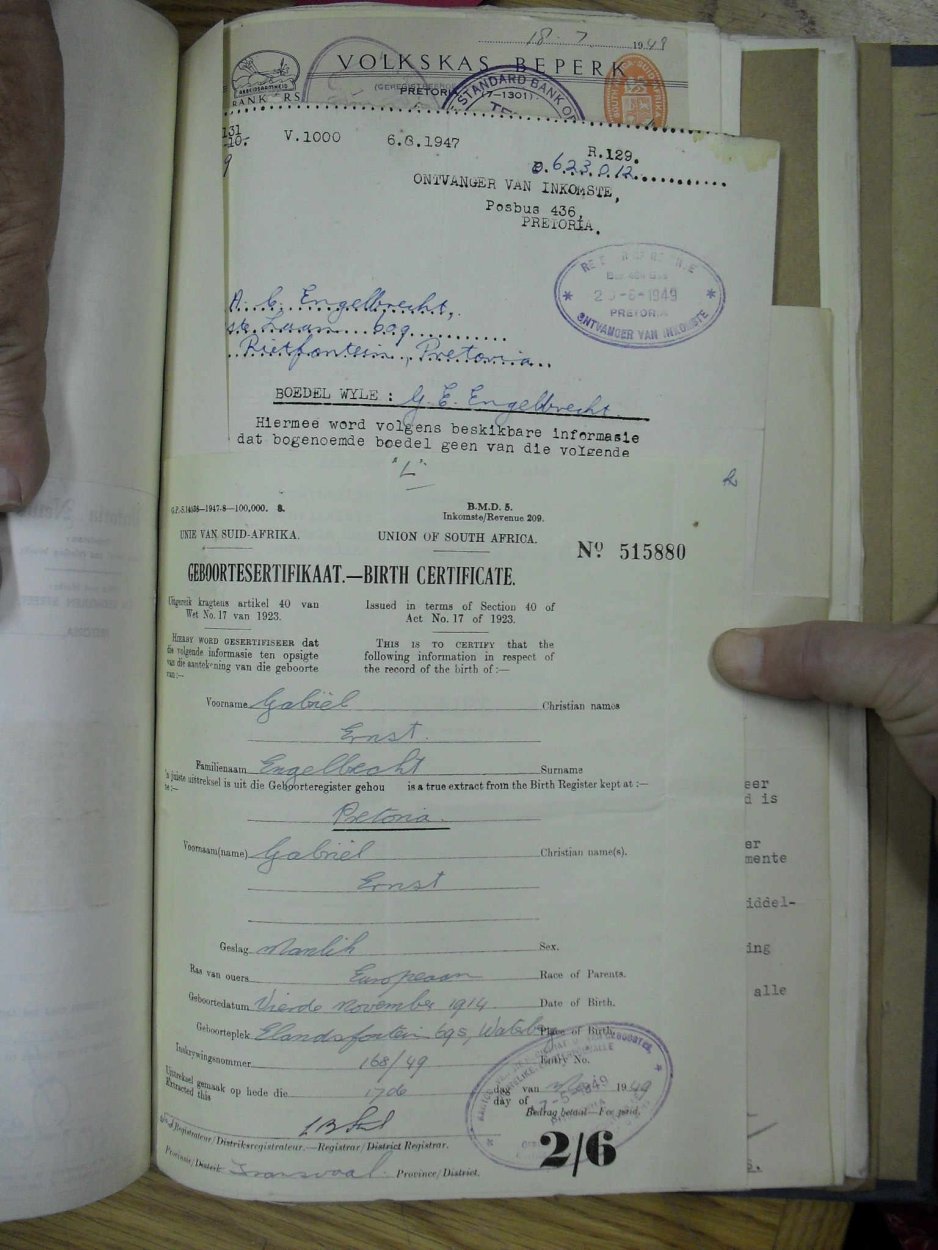 18 7 1949
VOLKSKAS BEPERK
ARBEIDSAAMHEID
PRETORIA
STANDARD BANK OF
V.1000 6.6.1947 R.129.
D.623.0.12
ONTVANGER VAN INKOMSTE,
Posbus 436,
PRETORIA.
-6-1949
PRETORIA
ONTVANGER VAN INKOMSTE
Engelbrecht,
Laan 699
Rietfontein, Pretoria
BOEDEL WYLE : G. E. Engelbrecht.
Hiermee word volgens beskikbare informasie
dat bogenoemde boedel geen van die volgende
"L"
2
—1947-8—100,000. S.
B.M.D. 5.
Inkomste/Revenue 209.
UNIE VAN SUID-AFRIKA. UNION OF SOUTH AFRICA.
No 515880
GEBOORTESERTIFIKAAT.—BIRTH CERTIFICATE.
Uitgereik kragtens artikel 40 van Issued in terms of Section 40 of
Wet No. 17 van 1923. Act No. 17 of 1923.
HIERBY WORD GESERTIFISEER dat THIS IS TO CERTIFY that the
die volgende informasie ten opsigte following information in respect of
van die aantekening van die geboorte the record of the birth of :—
van:—
Voorname Gabriël Christian names
Ernst.
Familienaam Engelbrecht Surname
'n juiste uitreksel is uit die Geboorteregister gehou is a true extract from the Birth Register kept at :—
te :—
Pretoria.
Voornaam(name) Gabriël Christian name(s).
Ernst
Geslag Manlik Sex.
Ras van ouers European Race of Parents.
Geboortedatum Vierde November 1914 Date of Birth.
Geboorteplek Elandsfontein Waterberg Place of Birth.
Inskrywingsnommer 168/49 Entry No.
Uittreksel gemaak op hede die 17de dag van 1949
Extracted this day of
Bedrag betaal—Fee paid.
-5-1949
Registrateur/Distriksregistrateur.—Registrar/District Registrar.
2/6
Provinsie/Distrik Transvaal Province/District.